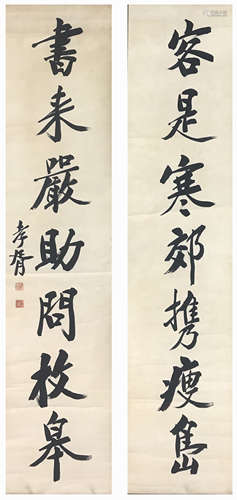 客是寒郊携瘦島
書来嚴助問枚皋
孝胥